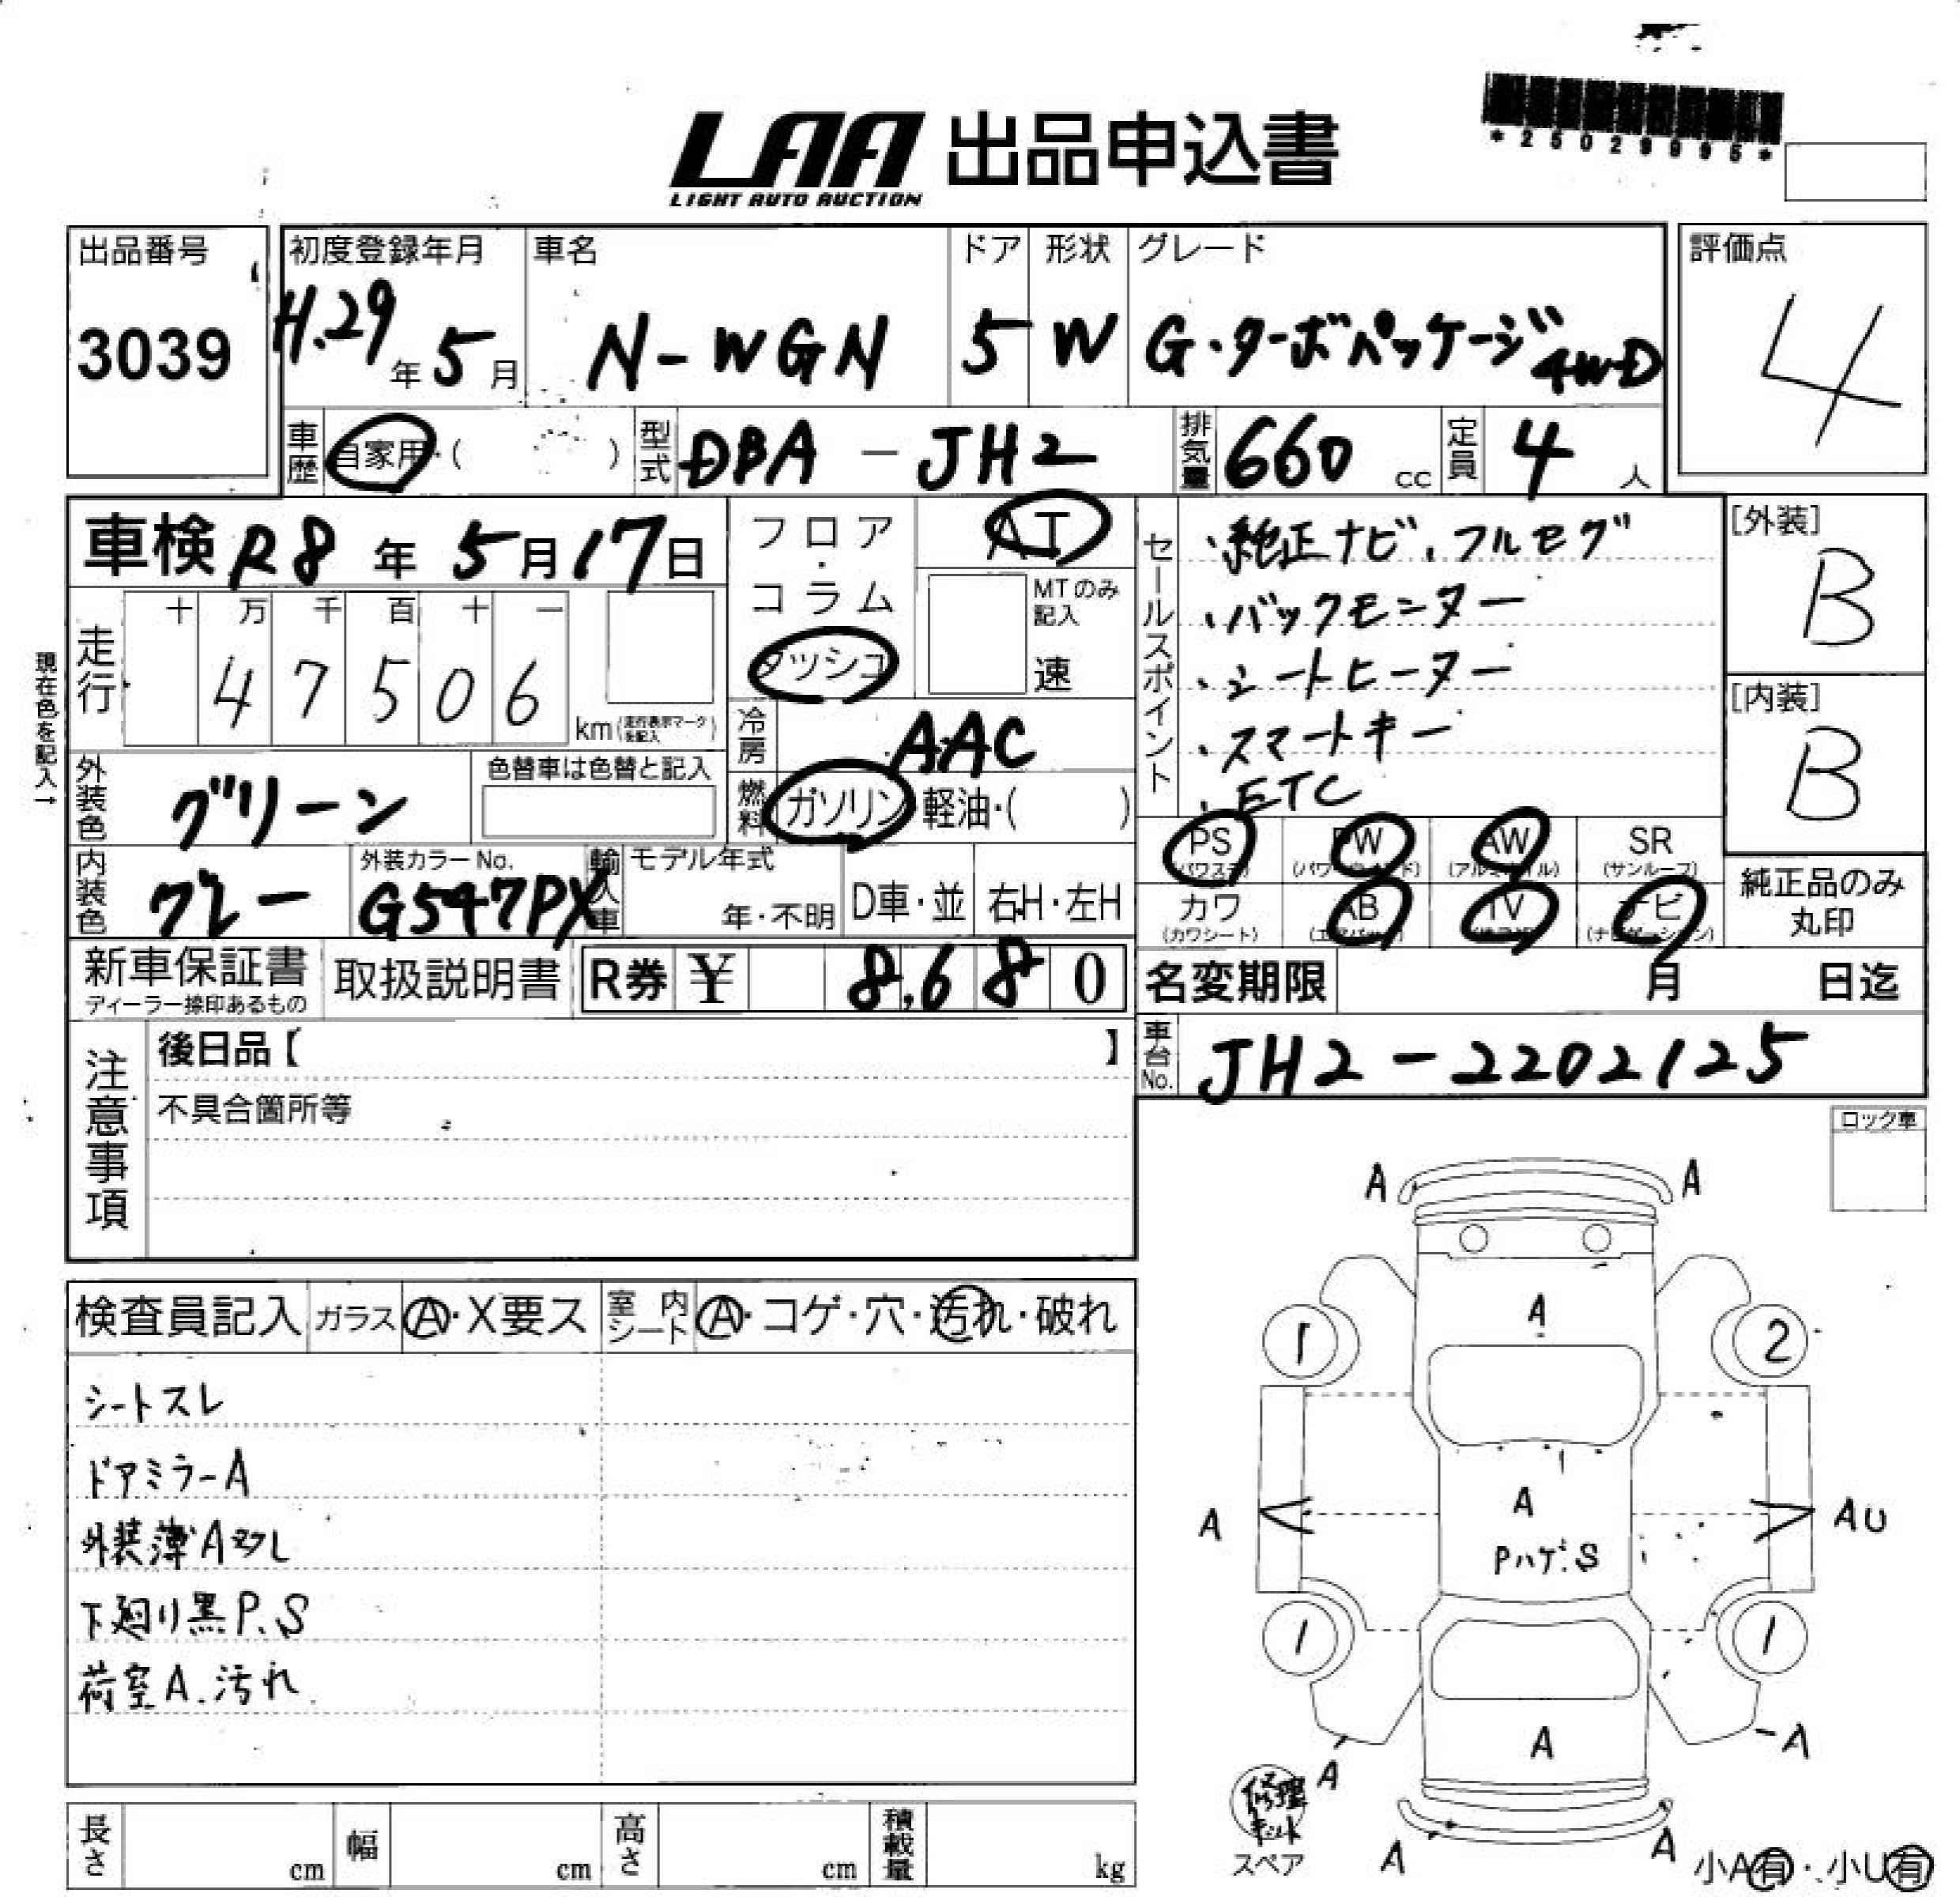 LAA 出品申込書
LIGHT AUTO AUCTION
*25029995*
出品番号
3039
初度登録年月
H.29年5月
車名
N-WGN
ドア
5
形状
W
グレード
G・ターボパッケージ 4WD
評価点
4
車歴 自家用・( )
型式 DBA-JH2
排気量 660 cc
定員 4 人
車検 R8年5月17日
フロア・コラム
ダッシュ
AT
MTのみ記入
速
走行
十 万 千 百 十 一
4 7 5 0 6 km (走行表示マークを記入)
現在色を記入→
冷房 AAC
燃料 ガソリン 軽油・( )
外装色 グリーン
色替車は色替と記入
内装色 グレー
外装カラーNo.
G547PX
輸入車 モデル年式
年・不明
D車・並
右H・左H
セールスポイント
・純正ナビ、フルセグ
・バックモニター
・シートヒーター
・スマートキー
・ETC
[外装]
B
[内装]
B
PS (パワステ)
PW (パワーウインド)
AW (アルミホイル)
SR (サンルーフ)
カワ (カワシート)
AB (エアバッグ)
TV
ナビ (ナビゲーション)
純正品のみ丸印
新車保証書
ディーラー捺印あるもの
取扱説明書
R券 ¥ 8,680
名変期限 月 日迄
車台No. JH2-2202125
注意事項
後日品【 】
不具合箇所等
ロック車
検査員記入 ガラス A・X要ス 室内シート A・コゲ・穴・汚れ・破れ
シートスレ
ドアミラーA
外装薄A多し
下廻り黒P.S
荷室A.汚れ
A A
A
1 2
A
A AU
Pハゲ.S
1 1
A
A -A
修理キット
スペア
A A
小A有・小U有
長さ cm
幅 cm
高さ cm
積載量 kg